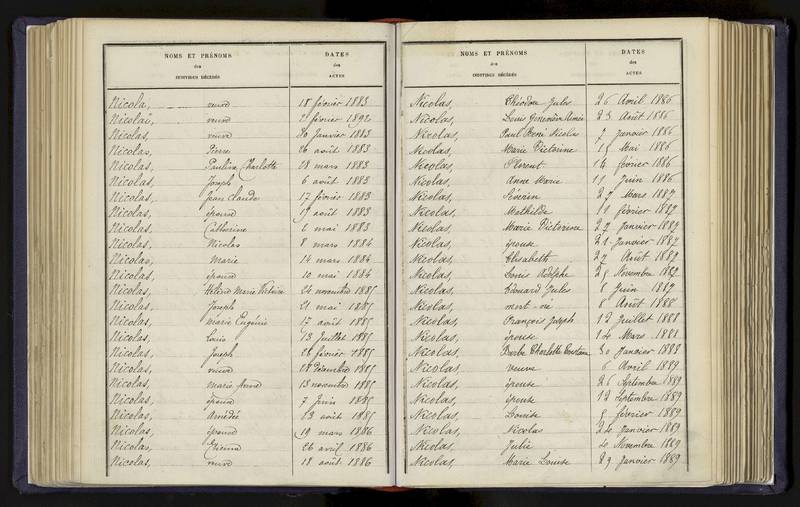 NOMS ET PRÉNOMS
des
INDIVIDUS DÉCÉDÉS
DATES
des
ACTES
Nicola, veuve 18 février 1883
Nicolaï, veuve 2 février 1892
Nicolas, veuve 20 Janvier 1883
Nicolas, Pierre 26 août 1883
Nicolas, Pauline Charlotte 28 mars 1883
Nicolas, Joseph 6 août 1883
Nicolas, Jean Claude 17 février 1883
Nicolas, épouse 19 août 1883
Nicolas, Catherine 2 mai 1883
Nicolas, Nicolas 8 mars 1884
Nicolas, Marie 14 mars 1884
Nicolas, épouse 10 mai 1884
Nicolas, Hélène Marie novembre 1885
Nicolas, Joseph 21 mai 1885
Nicolas, Marie Eugénie 17 août 1885
Nicolas, Louis 13 Juillet 1885
Nicolas, Joseph février 1885
Nicolas, veuve Décembre 1885
Nicolas, Marie Anne 13 novembre 1885
Nicolas, épouse 7 Juin 1885
Nicolas, Amédée 23 août 1885
Nicolas, épouse 19 mars 1886
Nicolas, Etienne 26 avril 1886
Nicolas, veuve 18 août 1886
NOMS ET PRÉNOMS
des
INDIVIDUS DÉCÉDÉS
DATES
des
ACTES
Nicolas, Théodore Jules 26 Avril 1886
Nicolas, Louis Aimée 23 Août 1886
Nicolas, Paul René Nicolas 7 Janvier 1886
Nicolas, Marie Victorine 15 Mai 1886
Nicolas, Florent 14 février 1886
Nicolas, Anne Marie 11 Juin 1886
Nicolas, Séverin 27 Mars 1887
Nicolas, Mathilde 11 février 1887
Nicolas, Marie Victorine 27 Janvier 1887
Nicolas, épouse 21 Janvier 1887
Nicolas, Elisabeth 27 Août 1887
Nicolas, Louis Adolphe 25 Novembre 1887
Nicolas, Edouard Jules Juin 1887
Nicolas, mort-né 8 Août 1888
Nicolas, François Joseph 12 Juillet 1888
Nicolas, épouse Mars 1888
Nicolas, Barbe Charlotte 30 Janvier 1883
Nicolas, veuve 6 Avril 1889
Nicolas, épouse 26 Septembre 1889
Nicolas, épouse 12 Septembre 1889
Nicolas, Louise février 1889
Nicolas, Nicolas 24 Janvier 1889
Nicolas, Julie Novembre 1889
Nicolas, Marie Louise 29 Janvier 1889